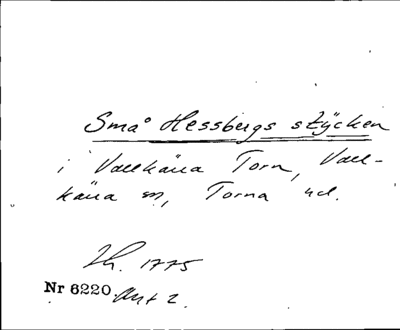 Små Hessbergs stÿcken
i Vallkärra Torn, Vall-
kärra sn, Torna hd.
Lh. 1775
Nr 6220. Akt 2.